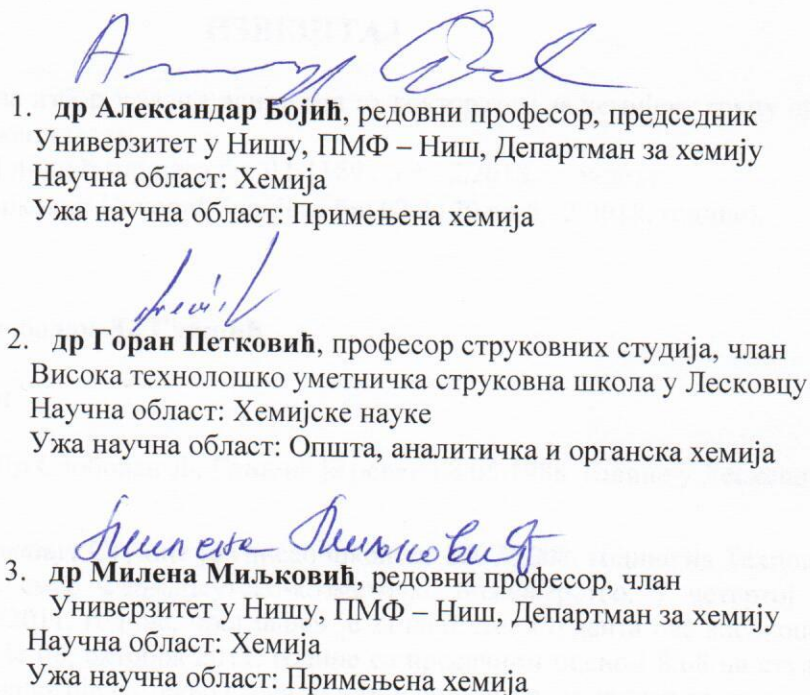 1. др Александар Бојић, редовни професор, председник
Универзитет у Нишу, ПМФ – Ниш, Департман за хемију
Научна област: Хемија
Ужа научна област: Примењена хемија
2. др Горан Петковић, професор струковних студија, члан
Висока технолошко уметничка струковна школа у Лесковцу
Научна област: Хемијске науке
Ужа научна област: Општа, аналитичка и органска хемија
Милена Миљковић
3. др Милена Миљковић, редовни професор, члан
Универзитет у Нишу, ПМФ – Ниш, Департман за хемију
Научна област: Хемија
Ужа научна област: Примењена хемија